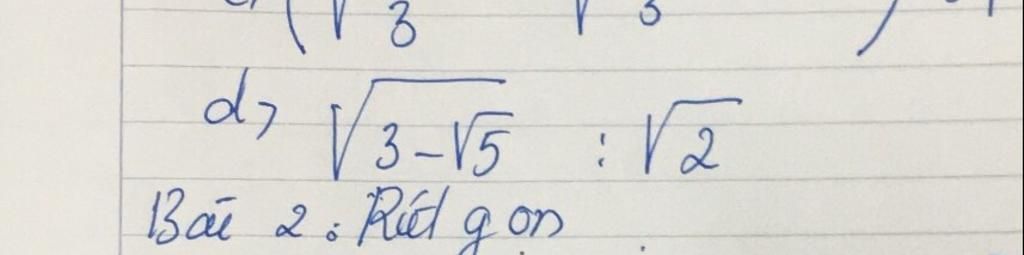 d) √(3-√5) : √2
Bài 2: Rút gọn